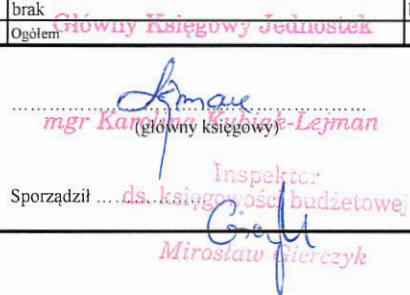 brak
Ogółem Główny Księgowy Jednostek
mgr Karolina Kubiak-Lejman
(główny księgowy)
Inspektor
Sporządził ds. księgowości budżetowej
Mirosław Gierczyk